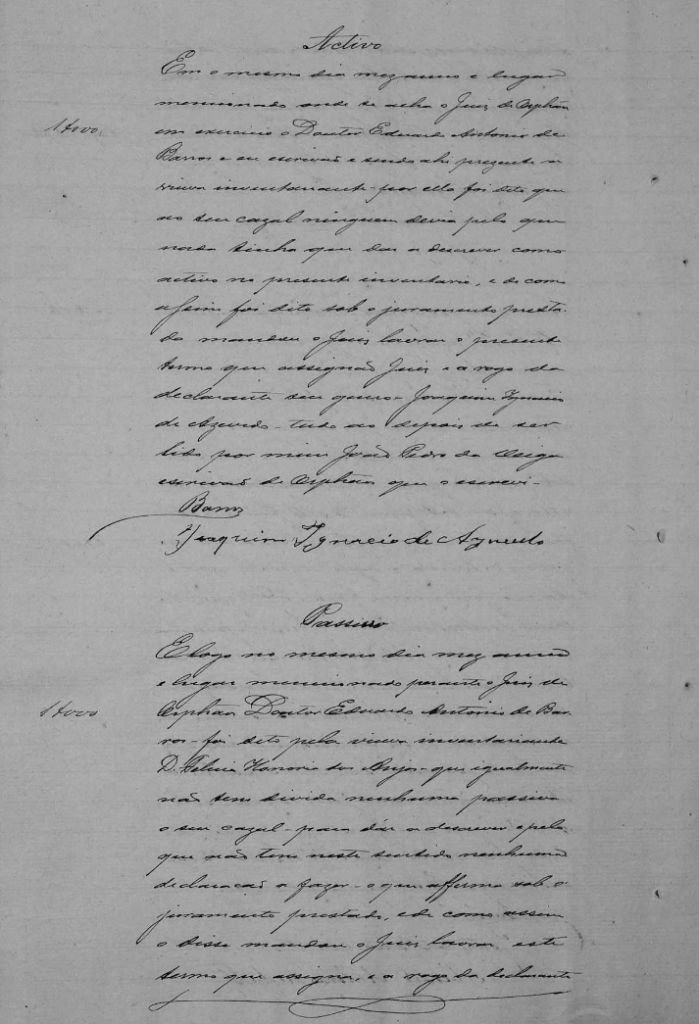 Activo
Em o mesmo dia mez anno e lugar
mencionado onde se acha o Juis de Orphãos
1$000.
em exercicio o Doutor Eduardo Antonio de
Barros e eu escrivão e sendo ahi prezente a
viuva inventariante por ella foi dito que
ao seu cazal ninguem devia pelo que
nada tinha que dar a descrever como
activo no presente inventario, e de como
assim foi dito sob o juramento presta-
do mandou o Juis lavrar o present
termo que assignão Juis e a rogo da
declarante seu genro Joaquim Ignacio
de Azevedo tudo ao depois de ser
lido por mim João Pedro da
escrivão de Orphãos que o escrevi-
Barros
Joaquim Ignacio de Azevedo
Passivo
E logo no mesmo dia mez anno
e lugar mencionado perante o Juis de
1$000
Orphãos Doutor Eduardo Antonio de Bar-
ros foi dito pela viuva inventariante
D. Felicia Honoria dos Anjos que igualmente
não tem divida nenhuma passiva
o seu cazal para dár a descrever e pelo
que não tem neste sentido nenhuma
declaração a fazer o que affirma sob o
juramento prestado, e de como assim
o disse mandou o Juis lavrar este
termo que assigna, e a rogo da declarante